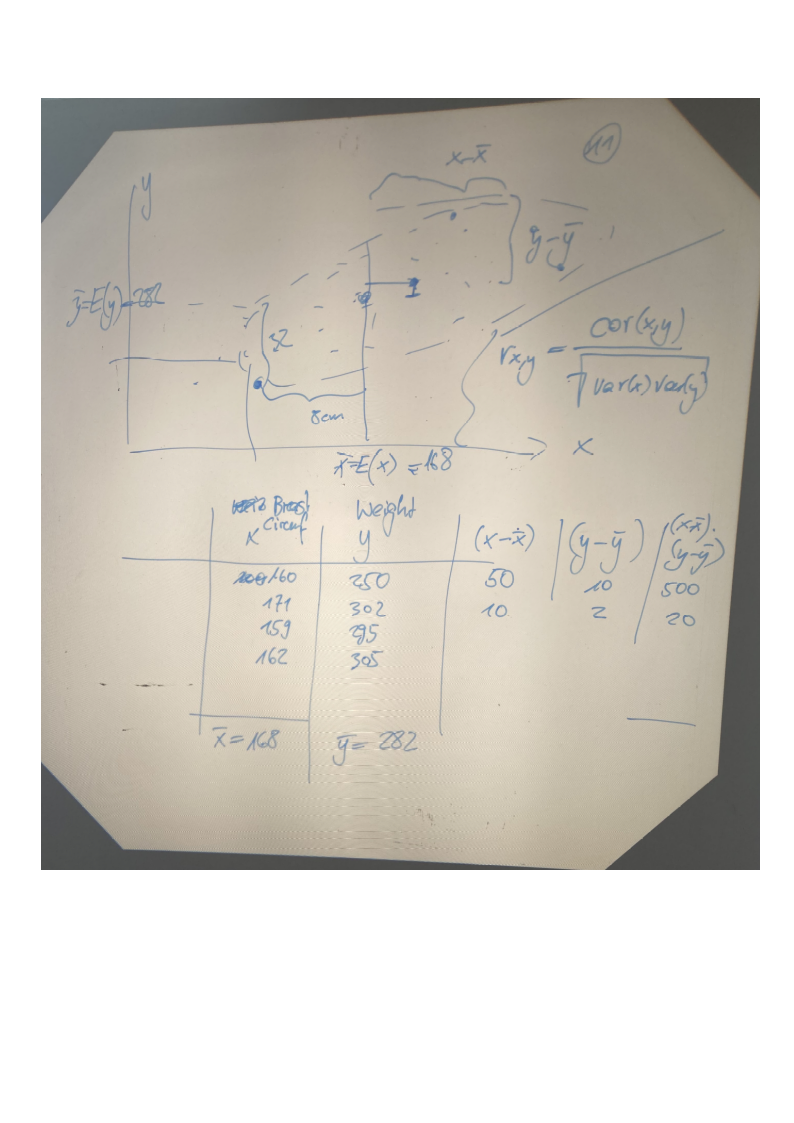 11
x-x̄
y
y-ȳ
ȳ=E(y)=282
32
8cm
r x,y = cov(x,y)
√var(x)var(y)
x̄=E(x)=168
x
Brust Weight
Circumf
x y (x-x̄) (y-ȳ) (x-x̄).(y-ȳ)
160 250 50 10 500
171 302 10 2 20
159 295
162 305
x̄=168 ȳ=282